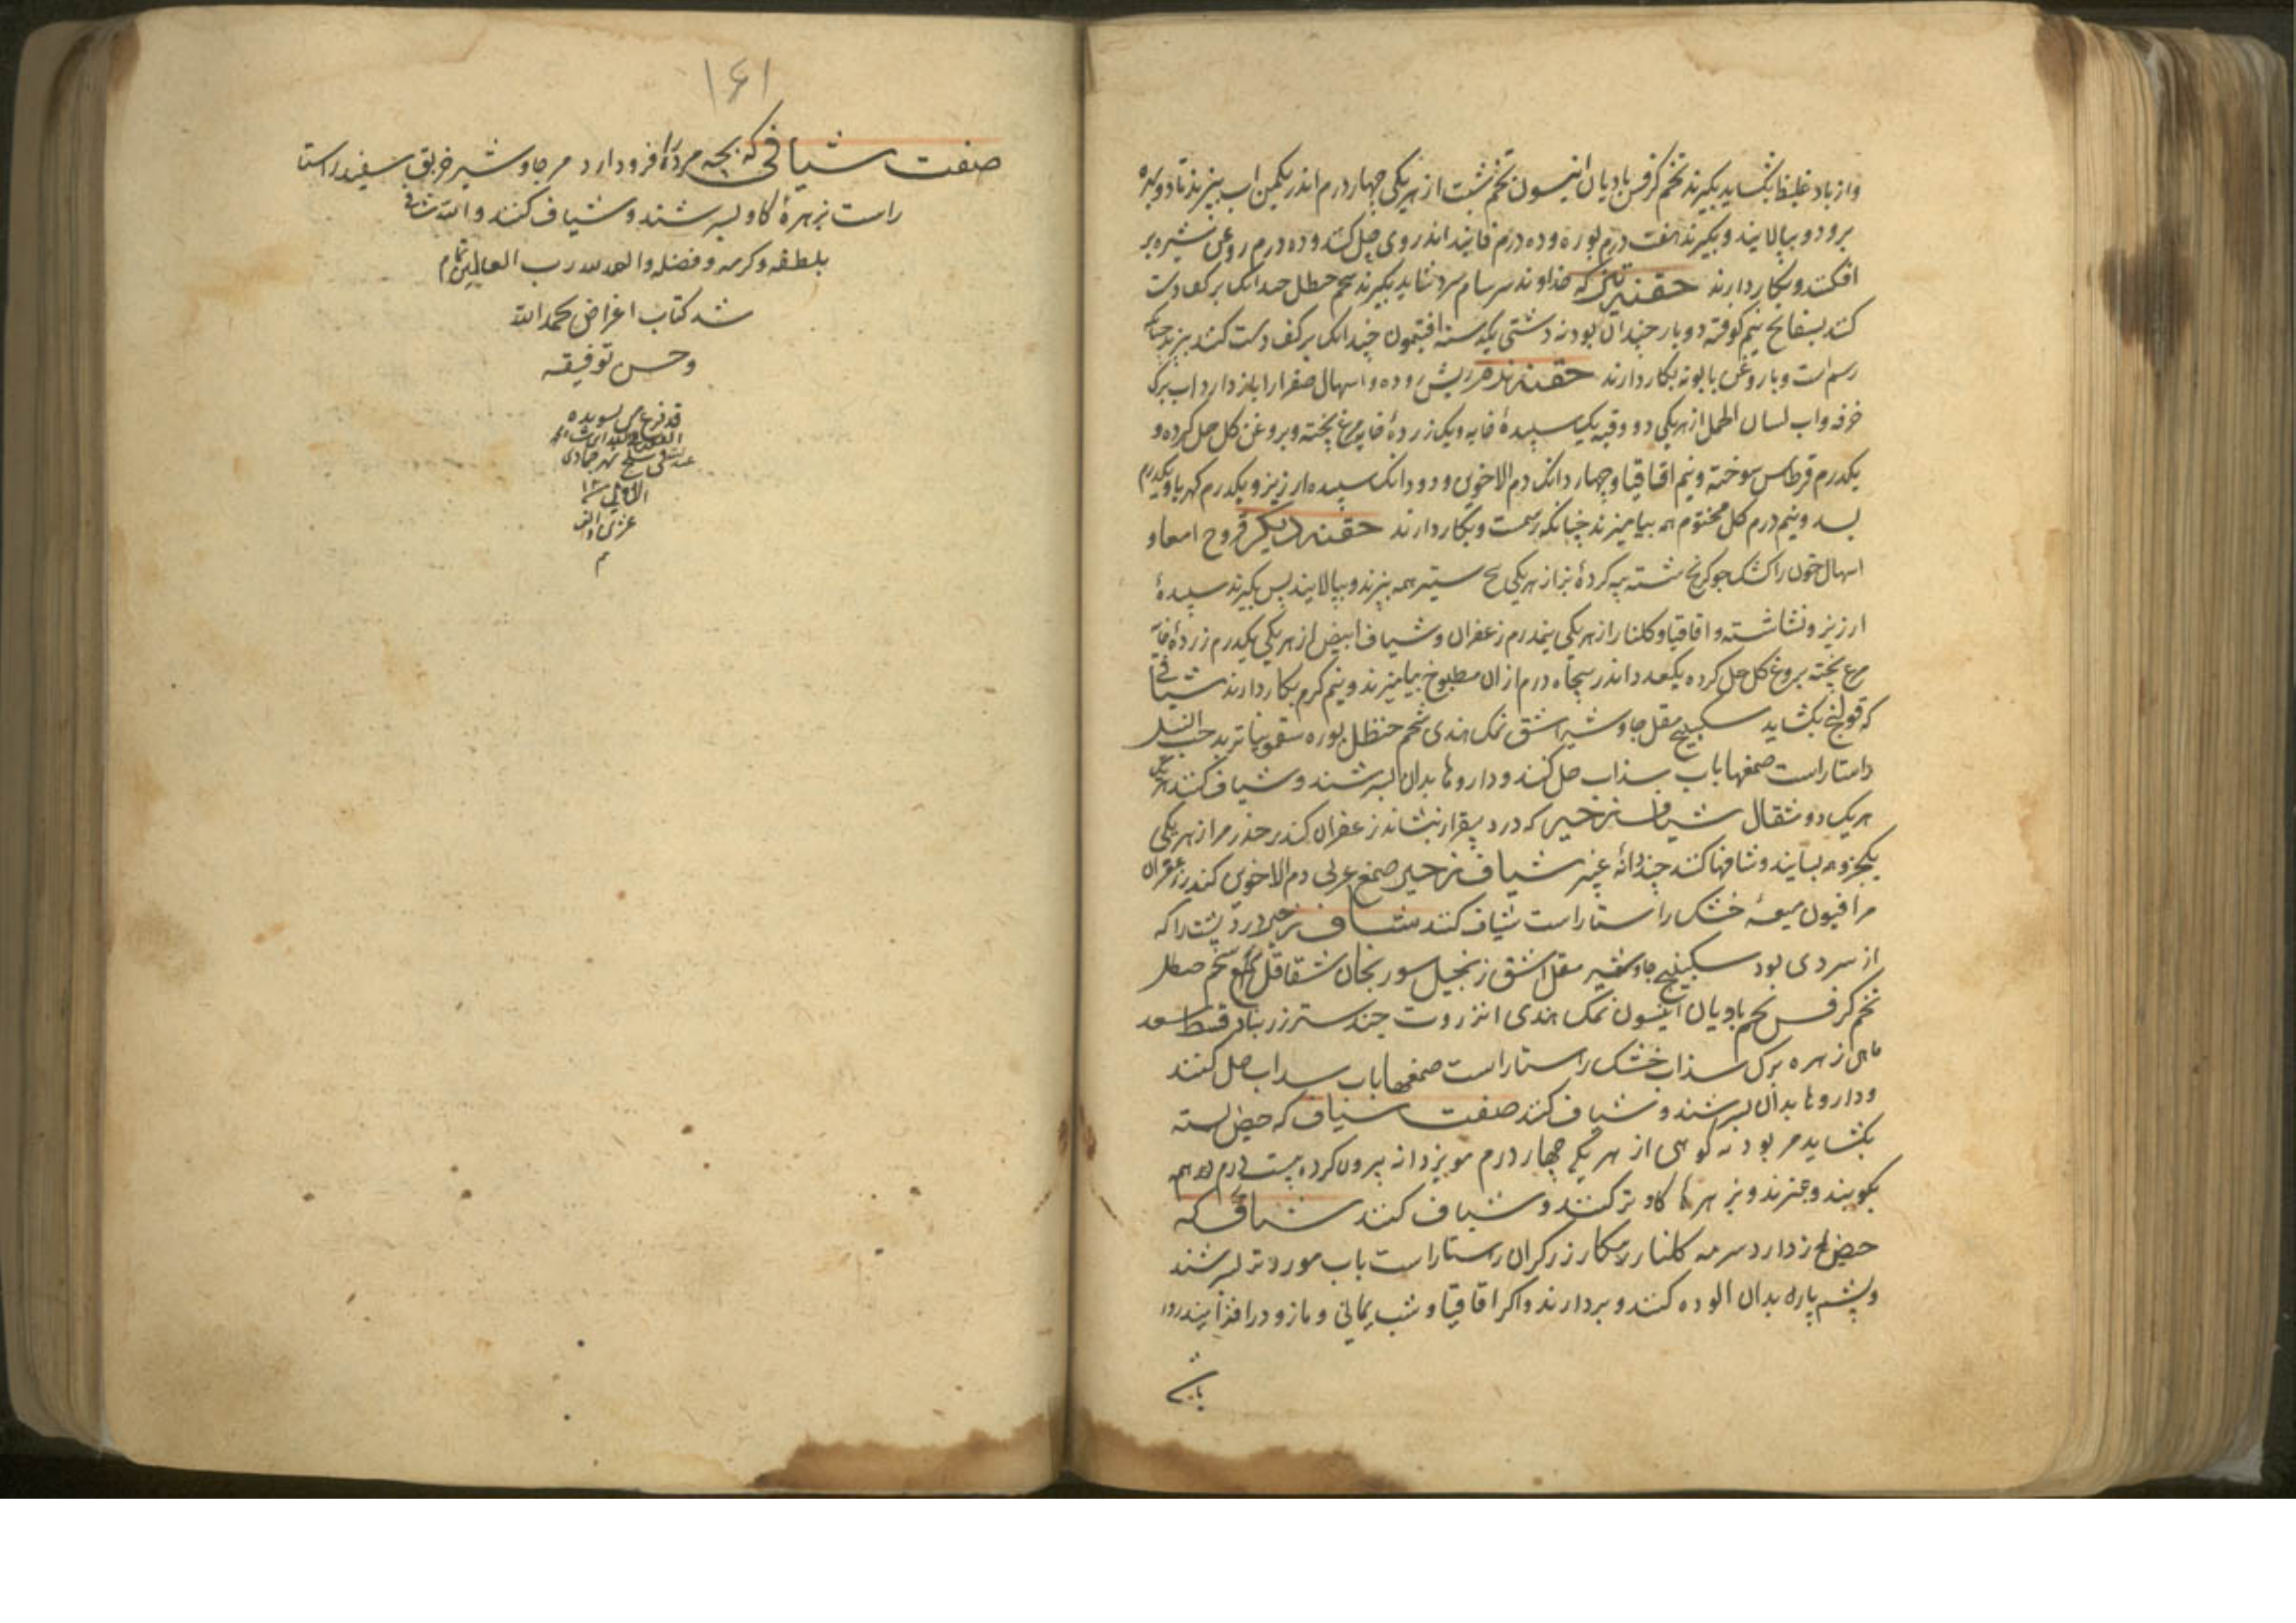 واز باد غلیظ بکشاید بکیرند تخم کرفس بادیان انیسون تخم شبت از هر یکی چهار درم اندر یکمن اب بپزند تا دو بهره
برود و بپالایند و بکیرند هفت درم بوره و ده درم فانیذ اندر وی حل کنند و ده درم روغن شیره بر
افکنند و بکار دارند حقنه تیز که خداوند سرسام سرد شاید بکیرند شحم حنظل چندانک بر کف دست
کنند بسفایج نیم کوفته دو بار چندان بودنه دشتی یکدسته افتیمون چندانک بر کف دست کنند بپزند چنانکه
رسم است و با روغن بابونه بکار دارند حقنه نرم ریش روده و اسهال صفرا را باز دارد اب برک
خرفه و اب لسان الحمل از هر یکی دو وقیه یک سپیدهٔ خایه و یک زردهٔ خایه مرغ پخته و بروغن کل حل کرده و
یکدرم قرطاس سوخته و نیم اقاقیا و چهار دانک دم الاخوین و دو دانک سپیده ارزیز و یکدرم کهربا و یکدرم
بسد و نیم درم کل مختوم همه بیامیزند چنانکه رسمت و بکار دارند حقنه دیکر قروح امعا و
اسهال خون را کشک جو کرنج شسته پیه کردهٔ بز از هر یکی پنج ستیر همه بپزند و بپالایند پس بکیرند سپیدهٔ
ارزیز و نشاشته و اقاقیا و کلنار از هر یکی نیمدرم زعفران و شیاف ابیض از هر یکی یکدرم زردهٔ خایه
مرغ پخته بروغن کل حل کرده یکعدد اندر پنجاه درم ازان مطبوخ بیامیزند و نیم کرم بکار دارند شیافی
که قولنج بکشاید سکبینج مقل جاوشیر اشق نمک هندی شحم حنظل بوره سقمونیا تربد حب النیل
راستاراست صمغها باب سذاب حل کنند و داروها بدان بسرشند و شیاف کنند
هر یک دو مثقال شیاف زحیر که درد بیقرار بنشاند زعفران کندر حضض مر از هر یکی
یکجزو همه بسایند و شافها کنند چند دانهٔ شیاف زحیر صمغ عربی دم الاخوین کندر زعفران
مر افیون میعهٔ خشک راستاراست شیاف کنند شیاف زحیر و درد پشت را که
از سردی بود سکبینج جاوشیر مقل اشق زنجبیل سورنجان شقاقل شحم حنظل
تخم کرفس تخم بادیان انیسون نمک هندی انزروت جندبیدستر زرنباد قسط سعد
ماهی زهره برک سذاب خشک راستاراست صمغها باب سداب حل کنند
و داروها بدان بسرشند و شیاف کنند صفت شیاف که حیض بسته
بکشاید مر بودنه کوهی از هر یکی چهار درم مویز دانه بیرون کرده بیست درم همه
بکوبند و بزهرها کاو تر کنند و شیاف کنند شیافی که
حیض باز دارد سرمه کلنار زرکران راستاراست باب مورد تر بسرشند
و پشم پاره بدان الوده کنند و بردارند و اکر اقاقیا و شب یمانی و مازو درافزایند روا
باشد
۱۶۱
صفت شیافی که بچه مرده را فرود ارد مر جاوشیر خربق سفید راستا
راست بزهرهٔ کاو بسرشند و شیاف کنند والله شافی
بلطفه و کرمه و فضله والحمد لله رب العالمین تمام
شد کتاب اغراض بحمد الله
و حسن توفیقه
قد فرغ من تسویده
سلخ شهر جمادی
الاولی